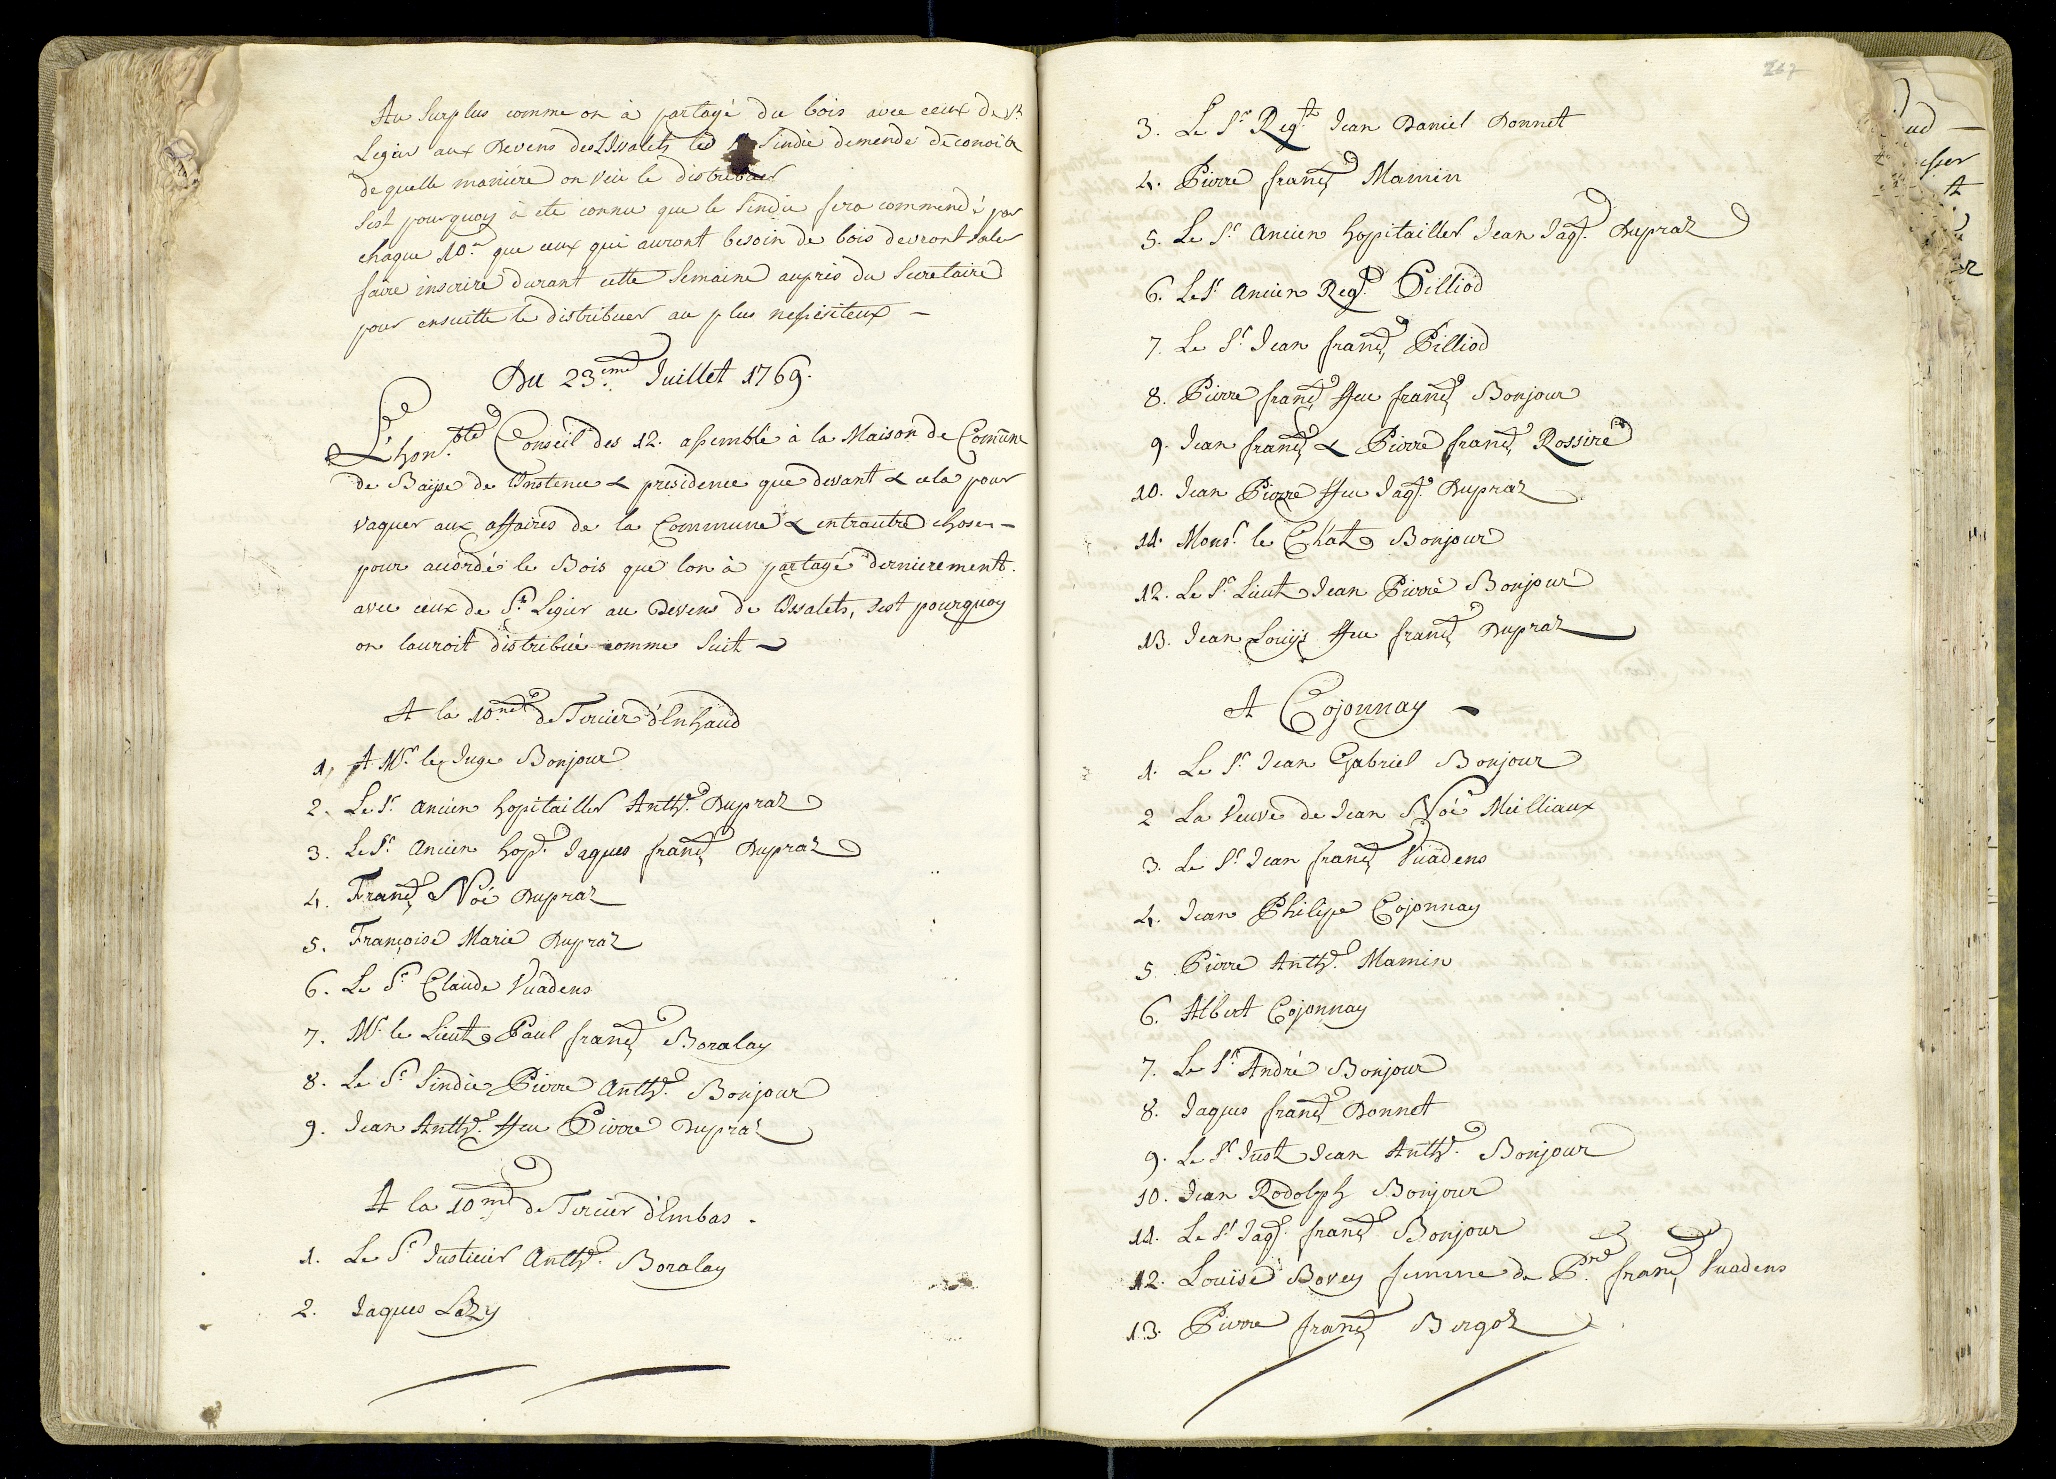 Au Surplus comme on à partagé du bois avec ceux de St
Legier aux Devens des Ussalets led Sindic demende de conoitre
de quelle manière on veu le distribuer
Sest pourquoy à ete connu que le Sindic fera commendé par
chaque 10.e que ceux qui auront besoin de bois devront saler
faire inscrire durant cette Semaine aupres du Secretaire
pour ensuitte le distribuer au plus nessesiteux –
Du 23.eme Juillet 1769.
L'hon.ble Conseil des 12. assemblé à la Maison de Comune
de Baÿse de L'instence & presidence que devant & cela pour
vaquer aux affaires de la Commune & entrautre choses –
pour acordé le Bois que lon à partagé dernierement
avec ceux de St. Legier au Devens de Ussalets, Sest pourquoy
on lauroit distribué comme Suit –
A la 10.me de Tercier d'Enhaud
1, A Mr. le Juge Bonjour
2. Le Sr. Ancien hopitaller Anth.e Dupraz
3. Le Sr. Ancien hop.r Jaques franç. Dupraz
4. Franç. Noé Dupraz
5. Françoise Marie Dupraz
6. Le Sr. Claude Vuadens
7. Mr. le Lieut. Paul franç. Boralay
8. Le Sr. Sindic Pierre Anth.e Bonjour
9. Jean Anth.e ffeu Pierre Dupraz
A la 10.me de Tercier d'Embas.
1. Le Sr. Justicier Anth.e Boralay
2. Jaques Lazy
267
3. Le Sr. Reg.t Jean Daniel Donnet
4. Pierre franç. Mamin
5. Le Sr. Ancien hopitailler Jean Jaq.s Dupraz
6. Le Sr. Ancien Reg.t Pilliod
7. Le Sr. Jean franç. Pilliod
8. Pierre franç. ffeu franç. Bonjour
9. Jean franç. & Pierre franç. Rossire
10. Jean Pierre ffeu Jaq.s Dupraz
11. Mons.r le Chat. Bonjour
12. Le Sr. Lieut. Jean Pierre Bonjour
13. Jean Louÿs ffeu franç. Dupraz
A Cojonnay –
1. Le Sr. Jean Gabriel Bonjour
2 La Veuve de Jean Noé Milliaux
3. Le Sr. Jean franç. Vuadens
4. Jean Philipe Cojonnay
5 Pierre Anth.e Mamin
6. Albert Cojonnay
7. Le Sr. André Bonjour
8. Jaques franç. Donnet
9. Le Sr. Just. Jean Anth.e Bonjour
10. Jean Rodolph Bonjour
11. Le Sr. Jaq.s franç. Bonjour
12. Louïse Bovey femme de P.re franç. Vuadens
13. Pierre franç. Bergoz